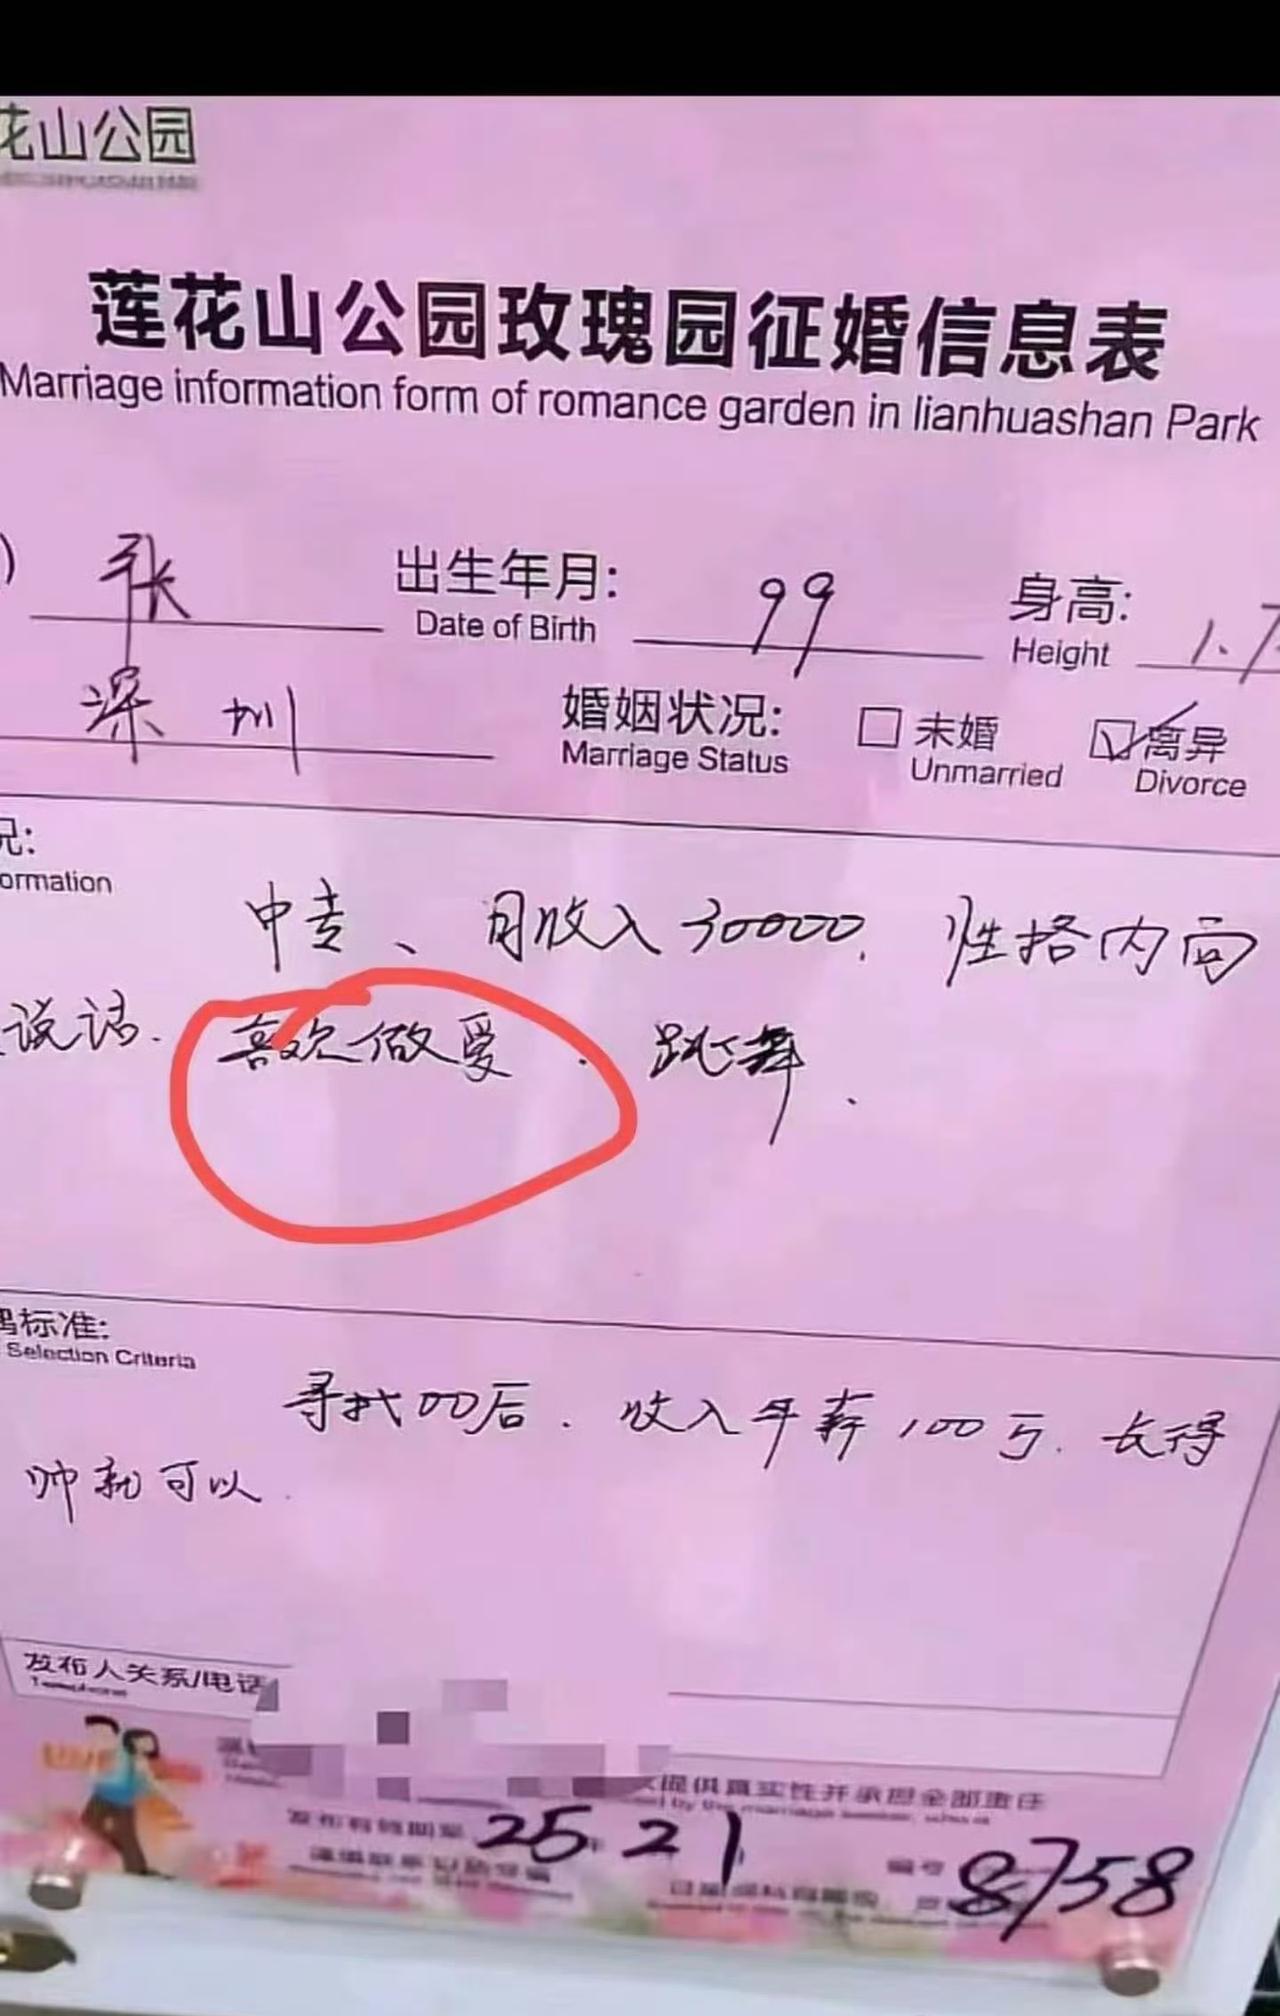 花山公园
莲花山公园玫瑰园征婚信息表
Marriage information form of romance garden in lianhuashan Park
) 张 出生年月: 99 身高: 1.7
Date of Birth Height
深圳 婚姻状况: 未婚 离异
Marriage Status Unmarried Divorce
况:
ormation
中专、月收入30000. 性格内向
说话. 喜欢做爱. 跳舞.
标准:
Selection Criteria
寻找00后. 收入年薪100万. 长得
帅就可以.
发布人关系/电话
Telephone
提供真实性并承担全部责任
发布有效期至 25 21
编号 8758